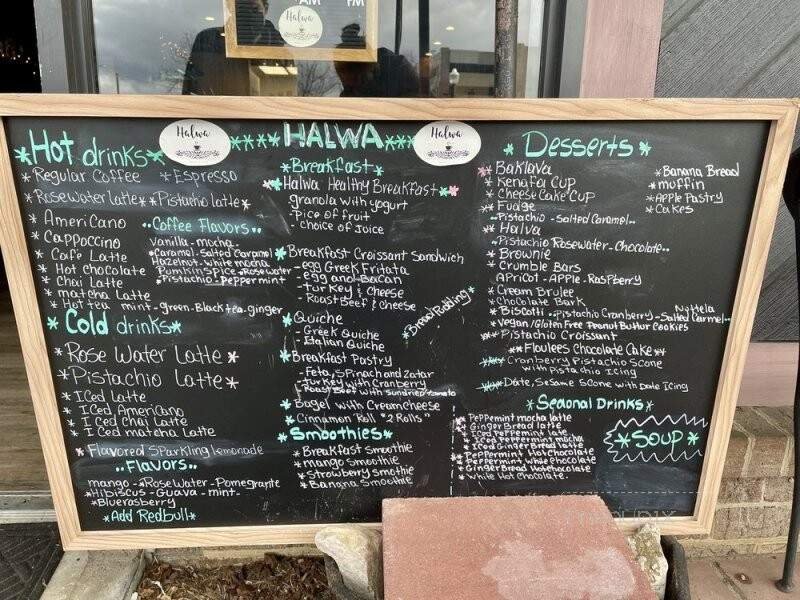 AM PM
Halwa
Halwa
HALWA
Halwa
Hot drinks
* Regular Coffee * Espresso
* Rosewater Latte * Pistachio latte *
* Americano
* Cappoccino
* Cafe Latte
* Hot chocolate
* Chai Latte
* matcha Latte
* Hot tea mint - green - Black tea - ginger
..Coffee Flavors..
Vanilla - mocha
Caramel - Salted Caramel
Hazelnut - white mocha
Pumkin Spice - Rosewater
Pistachio - Peppermint
* Cold drinks *
* Rose Water Latte *
* Pistachio Latte *
* Iced Latte
* Iced Americano
* Iced chai Latte
* Iced matcha Latte
* Flavored Sparkling lemonade
..Flavors..
mango - Rose Water - Pomegrante
* Hibiscus - Guava - mint -
* Blue rasberry
* Add Redbull *
* Breakfast *
* Halwa Healthy Breakfast *
granola with yogurt
- Pice of fruit
- choice of Juice
* Breakfast Croissant Sandwich
- egg Greek Fritata
- egg and Bacon
- turkey & cheese
- Roast Beef & cheese
* Bread Pudding *
* Quiche
- Greek Quiche
- Italian Quiche
* Breakfast Pastry
- Feta, Spinach and Zatar
- turkey with Cranberry
- Roast Beef with sundried tomato
* Bagel with Creamcheese
* Cinnamon Roll "2 Rolls"
* Smoothies *
* Breakfast smoothie
* mango Smoothie
* Strowberry smoothie
* Banana Smoothie
* Desserts *
* Baklava
* Kenafa Cup
* Cheese Cake Cup
* Fudge
- Pistachio - Salted Caramel..
* Halva
- Pistachio Rosewater - Chocolate..
* Brownie
* Crumble Bars
Apricot - Apple - Raspberry
* Cream Brulee
* Chocolate Bark
* Biscotti - Pistachio Cranberry - Salted Caramel..
Nuttela
* Vegan / Gluten Free Peanut Buttur Cookies
* Pistachio Croissant
** Flaulees Chocolate Cake **
Cranberry Pistachio Scone
with Pistachio Icing
Date, Sesame Scone with Date Icing
* Banana Bread
* muffin
* Apple Pastry
* Cakes
* Seasonal Drinks *
* Peppermint mocha latte
* Ginger Bread latte
* Iced Peppermint latte
* Iced Peppermint mocha
* Iced Ginger Bread latte
* Peppermint Hot chocolate
* Peppermint White chocolate
* Ginger Bread Hot chocolate
* White Hot Chocolate.
* SOUP *